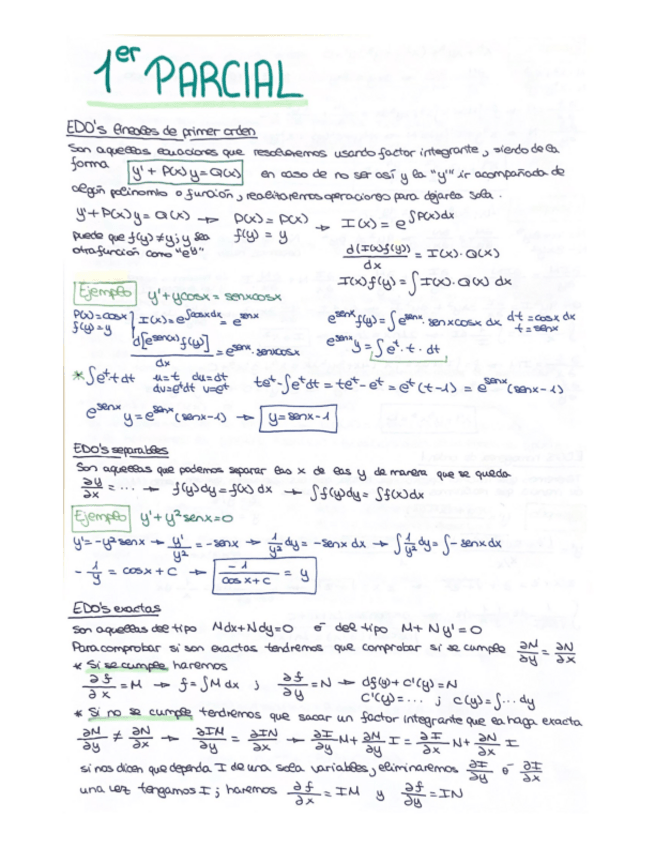 1er PARCIAL
EDO's lineales de primer orden
Son aquellas ecuaciones que resolveremos usando factor integrante, siendo de la
forma y' + P(x)y = Q(x) en caso de no ser así y la "y'" ir acompañada de
algún polinomio o función, realizaremos operaciones para dejarla sola.
y' + P(x)y = Q(x) → P(x) = P(x) → I(x) = e^∫P(x)dx
f(y) = y
puede que f(y) ≠ y; y sea
otra función como "e^y"
d(I(x)f(y))/dx = I(x)·Q(x)
I(x)f(y) = ∫I(x)·Q(x) dx
Ejemplo y' + ycosx = senxcosx
P(x) = cosx
f(y) = y
I(x) = e^∫cosxdx = e^senx
d[e^sen(x) f(y)]/dx = e^senx · senxcosx
e^senx f(y) = ∫e^senx · senxcosx dx dt = cosx dx
t = senx
e^senx y = ∫e^t · t · dt
* ∫e^t·t dt u=t du=dt
dv=e^t dt v=e^t
te^t - ∫e^t dt = te^t - e^t = e^t (t-1) = e^senx (senx-1)
e^senx y = e^senx (senx-1) → y = senx-1
EDO's separables
Son aquellas que podemos separar las x de las y de manera que se queda
∂y/∂x = ... → f(y)dy = f(x)dx → ∫f(y)dy = ∫f(x)dx
Ejemplo y' + y² senx = 0
y' = -y² senx → y'/y² = -senx → 1/y² dy = -senx dx → ∫1/y² dy = ∫-senxdx
-1/y = cosx + C → -1/(cosx+C) = y
EDO's exactas
Son aquellas del tipo Mdx+Ndy=0 o del tipo M+Ny'=0
Para comprobar si son exactas tendremos que comprobar si se cumple ∂M/∂y = ∂N/∂x
* Si se cumple haremos
∂f/∂x = M → f = ∫M dx ; ∂f/∂y = N → df(y) + C'(y) = N
C'(y) = ... ; C(y) = ∫... dy
* Si no se cumple tendremos que sacar un factor integrante que la haga exacta
∂M/∂y ≠ ∂N/∂x → ∂IM/∂y = ∂IN/∂x → ∂I/∂y M + ∂M/∂y I = ∂I/∂x N + ∂N/∂x I
si nos dicen que dependa I de una sola variables, eliminaremos ∂I/∂y o ∂I/∂x
una vez tengamos I; haremos ∂f/∂x = IM y ∂f/∂y = IN